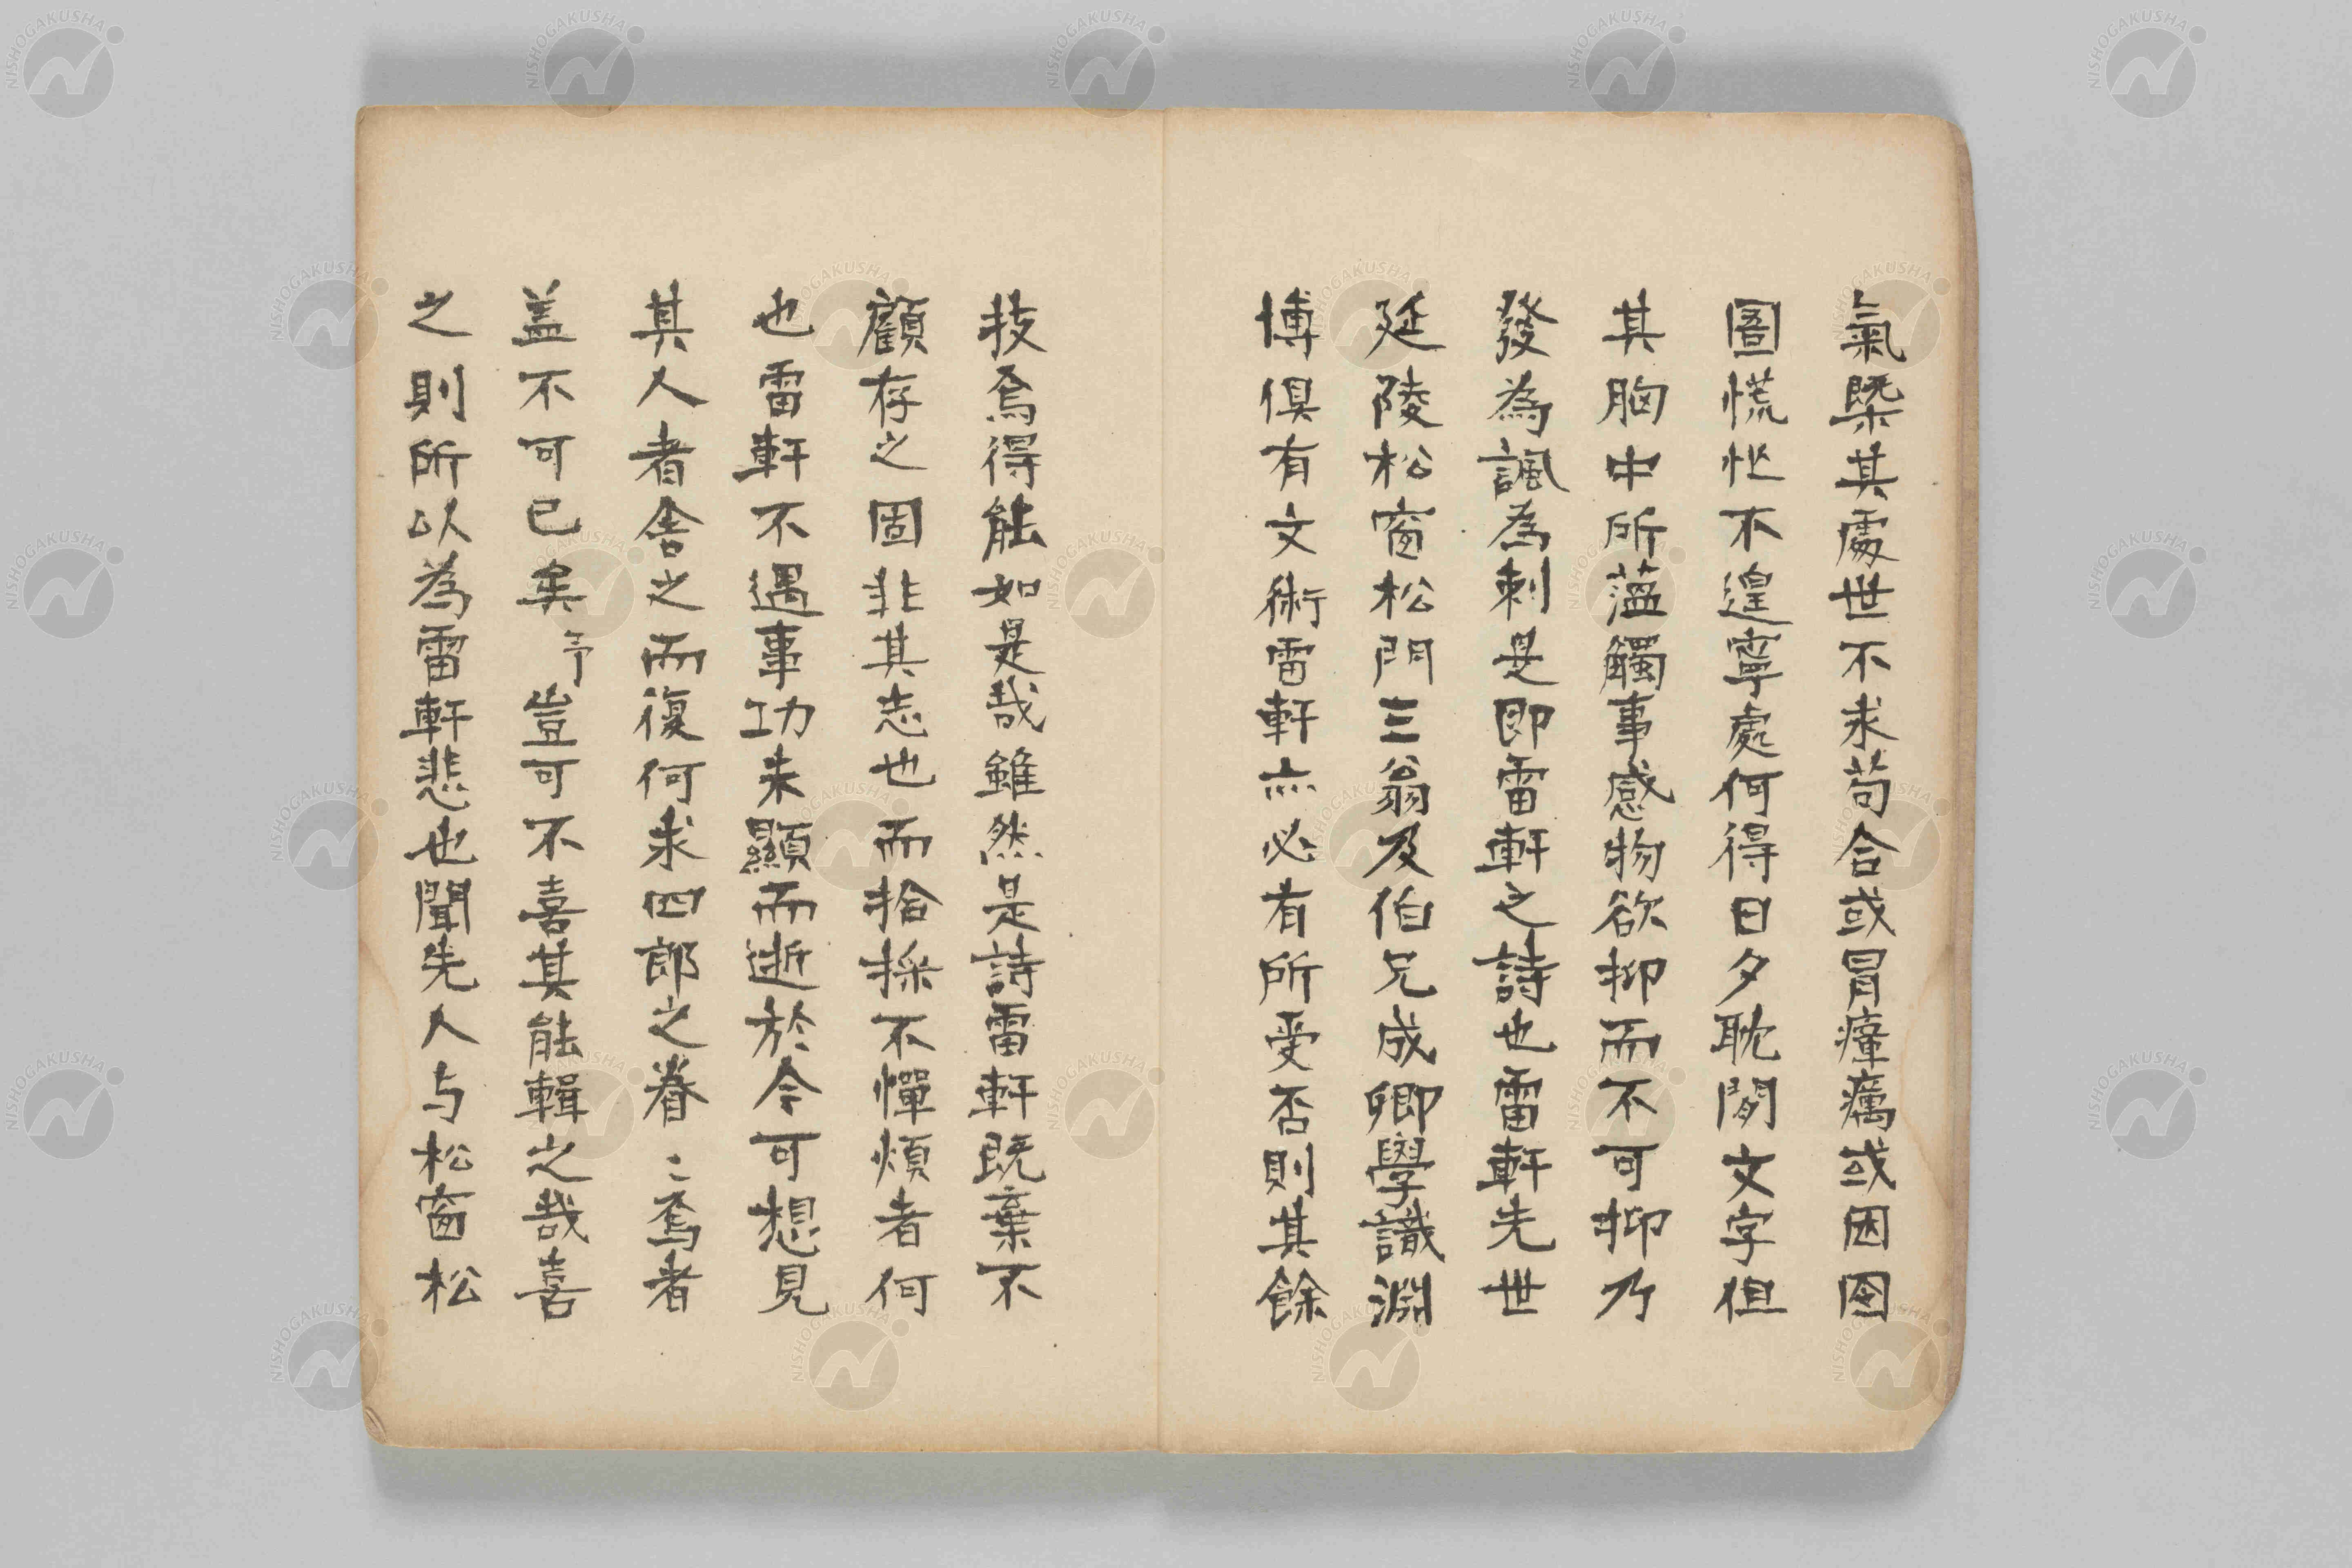 氣槩其處世不求苟合或冒瘴癘或困囹
圄慌忙不遑寧處何得日夕耽閱文字但
其胸中所薀觸事感物欲抑而不可抑乃
發為諷為刺是即雷軒之詩也雷軒先世
延陵松窗松門三翁及伯兄成卿學識淵
博俱有文術雷軒亦必有所受否則其餘
技焉得能如是哉雖然是詩雷軒既棄不
顧存之固非其志也而拾採不憚煩者何
也雷軒不遇事功未顯而逝於今可想見
其人者舍之而復何求四郎之眷〻焉者
盖不可已矣予豈可不喜其能輯之哉喜
之則所以為雷軒悲也聞先人与松窗松
NISHOGAKUSHA